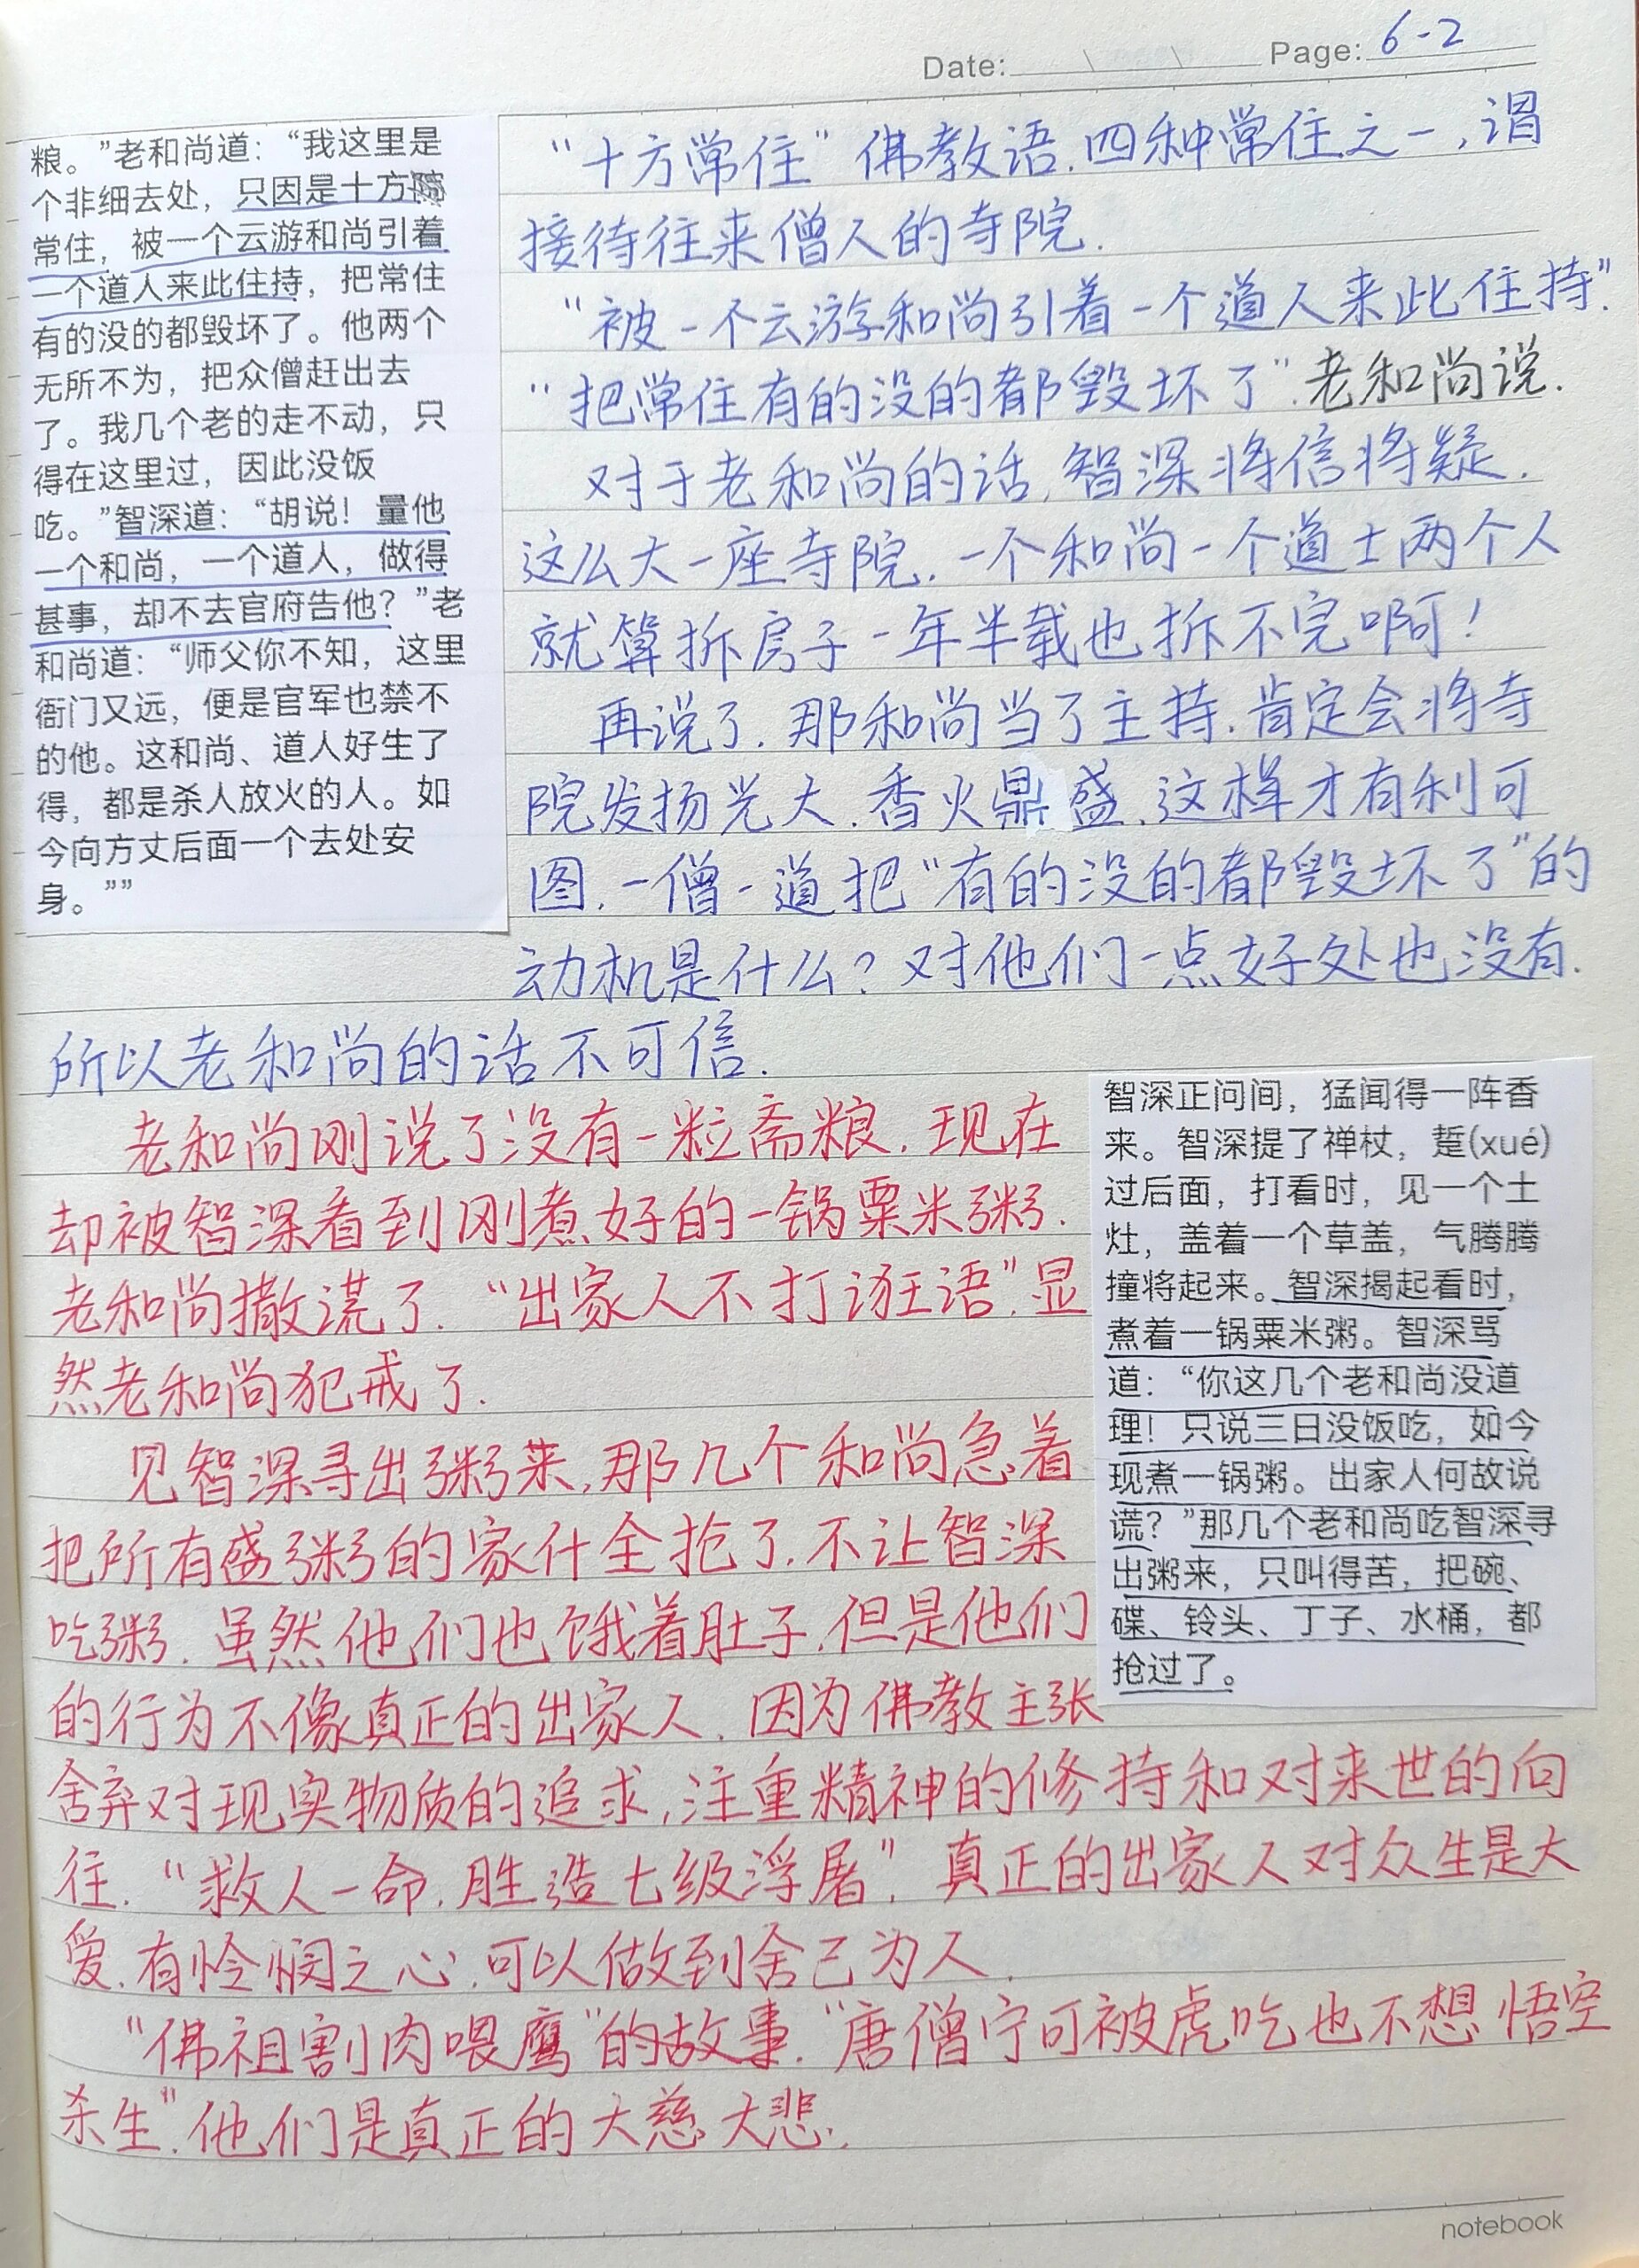 Date: \ \ Page: 6-2
粮。”老和尚道：“我这里是
个非细去处，只因是十方
常住，被一个云游和尚引着
一个道人来此住持，把常住
有的没的都毁坏了。他两个
无所不为，把众僧赶出去
了。我几个老的走不动，只
得在这里过，因此没饭
吃。”智深道：“胡说！量他
一个和尚，一个道人，做得
甚事，却不去官府告他？”老
和尚道：“师父你不知，这里
衙门又远，便是官军也禁不
的他。这和尚、道人好生了
得，都是杀人放火的人。如
今向方丈后面一个去处安
身。””
“十方常住”佛教语.四种常住之一,谓
接待往来僧人的寺院.
“被一个云游和尚引着一个道人来此住持”.
“把常住有的没的都毁坏了”.老和尚说.
对于老和尚的话,智深将信将疑.
这么大一座寺院.一个和尚一个道士两个人
就算拆房子一年半载也拆不完啊!
再说了.那和尚当了主持.肯定会将寺
院发扬光大.香火鼎盛.这样才有利可
图.一僧一道把“有的没的都毁坏了”的
动机是什么?对他们一点好处也没有.
所以老和尚的话不可信.
老和尚刚说了没有一粒斋粮.现在
却被智深看到刚煮好的一锅粟米粥.
老和尚撒谎了.“出家人不打诳语”.显
然老和尚犯戒了.
见智深寻出粥来,那几个和尚急着
把所有盛粥的家什全抢了.不让智深
吃粥.虽然他们也饿着肚子.但是他们
的行为不像真正的出家人.因为佛教主张
舍弃对现实物质的追求,注重精神的修持和对来世的向
往.“救人一命.胜造七级浮屠”.真正的出家人对众生是大
爱.有怜悯之心.可以做到舍己为人.
“佛祖割肉喂鹰”的故事.“唐僧宁可被虎吃也不想悟空
杀生”.他们是真正的大慈大悲.
智深正问间，猛闻得一阵香
来。智深提了禅杖，踅(xué)
过后面，打看时，见一个土
灶，盖着一个草盖，气腾腾
撞将起来。智深揭起看时，
煮着一锅粟米粥。智深骂
道：“你这几个老和尚没道
理！只说三日没饭吃，如今
现煮一锅粥。出家人何故说
谎？”那几个老和尚吃智深寻
出粥来，只叫得苦，把碗、
碟、铃头、丁子、水桶，都
抢过了。
notebook